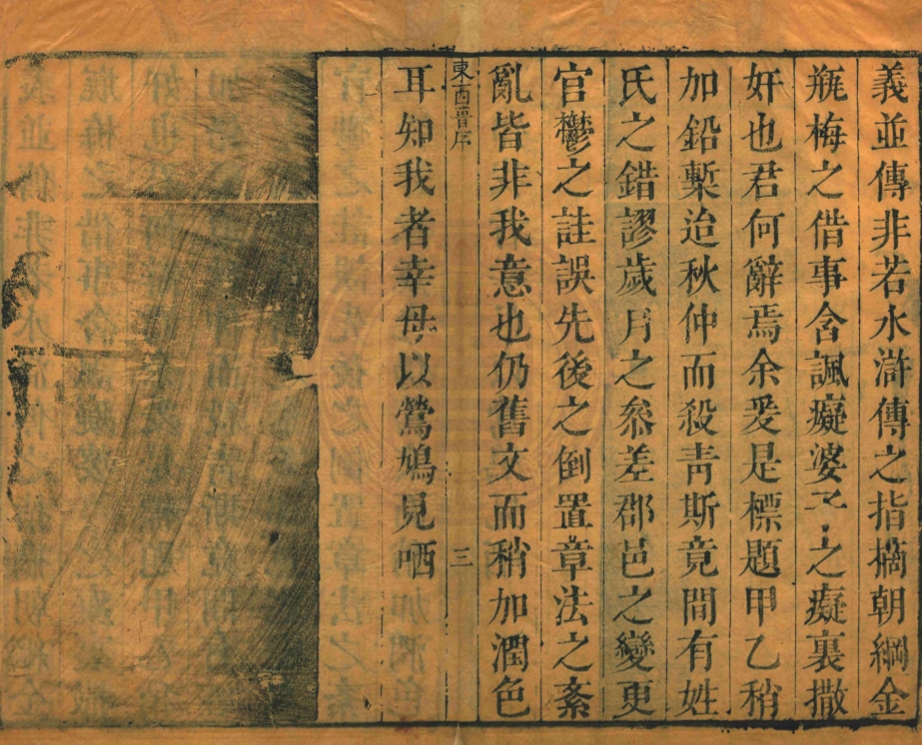 義並傳非若水滸傳之指摘朝綱金
瓶梅之借事含諷癡婆子之癡裏撒
奸也君何辭焉余爰是標題甲乙稍
加鉛槧迨秋仲而殺青斯竟間有姓
氏之錯謬歲月之叅差郡邑之變更
官欎之註誤先後之倒置章法之紊
亂皆非我意也仍舊文而稍加潤色
東西晉序
三
耳知我者幸毋以鶯鳩見哂